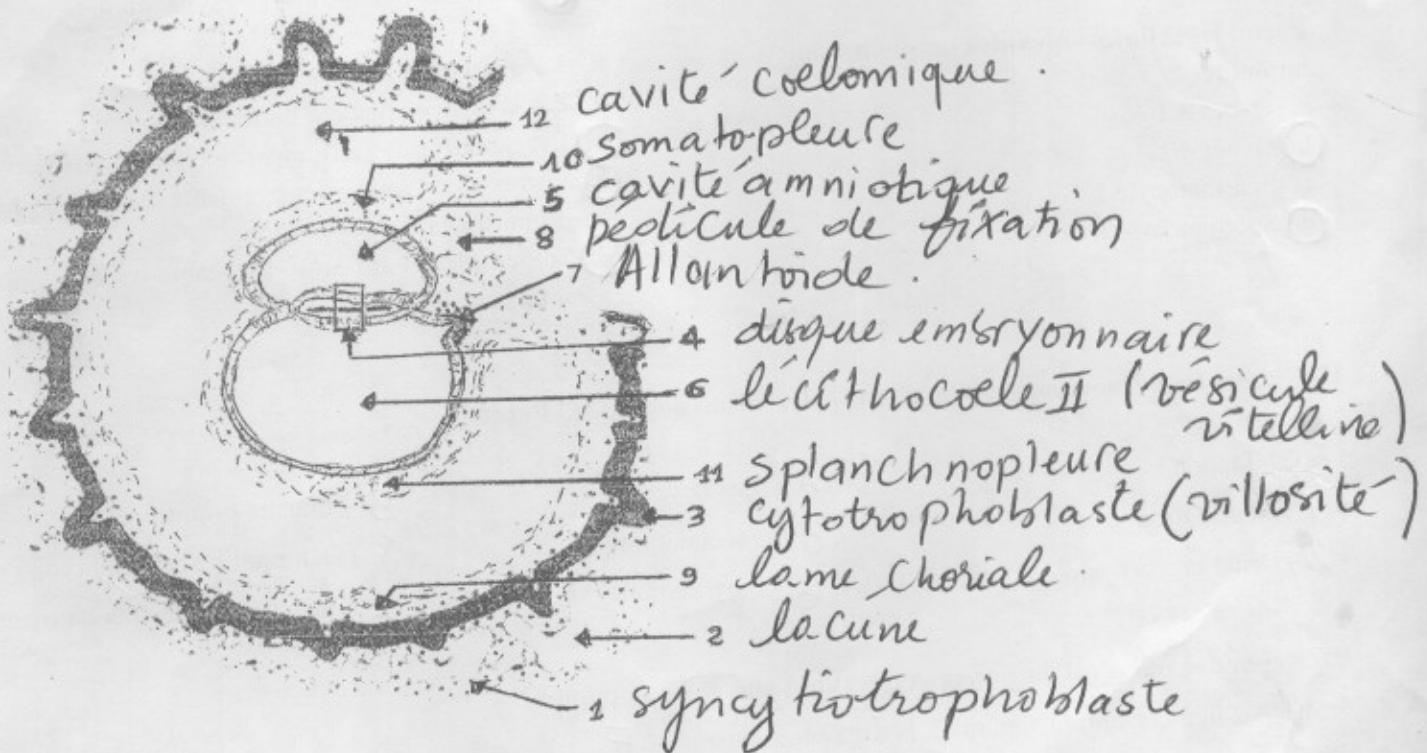 12 cavité coelomique.
10 somatopleure
5 cavité amniotique
8 pédicule de fixation
7 Allantoide.
4 disque embryonnaire
6 lécithocoele II (vésicule
vitelline)
11 splanchnopleure
3 cytotrophoblaste (villosité)
9 lame choriale.
2 lacune
1 syncytiotrophoblaste